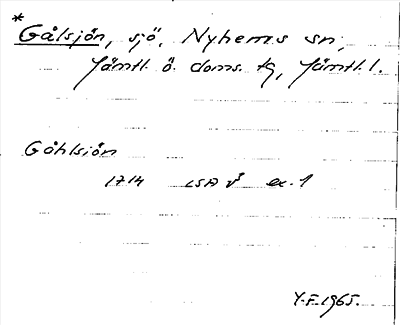 *
Gålsjön, sjö. Nyhems sn,
Jämtl. ö. doms. tg, Jämtl. l.
Gåhlsjön
1714 LSA ex. 1
Y.F. 1965.